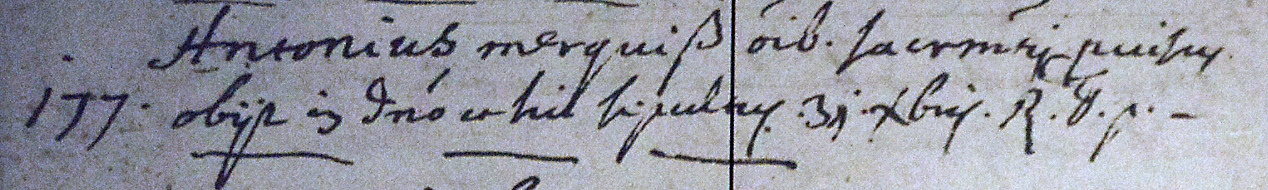 Antonius merquiß oib. sacrmtis puisus
177. obijt in dno et hic sepultus. 31. xbris. R. d. p. -